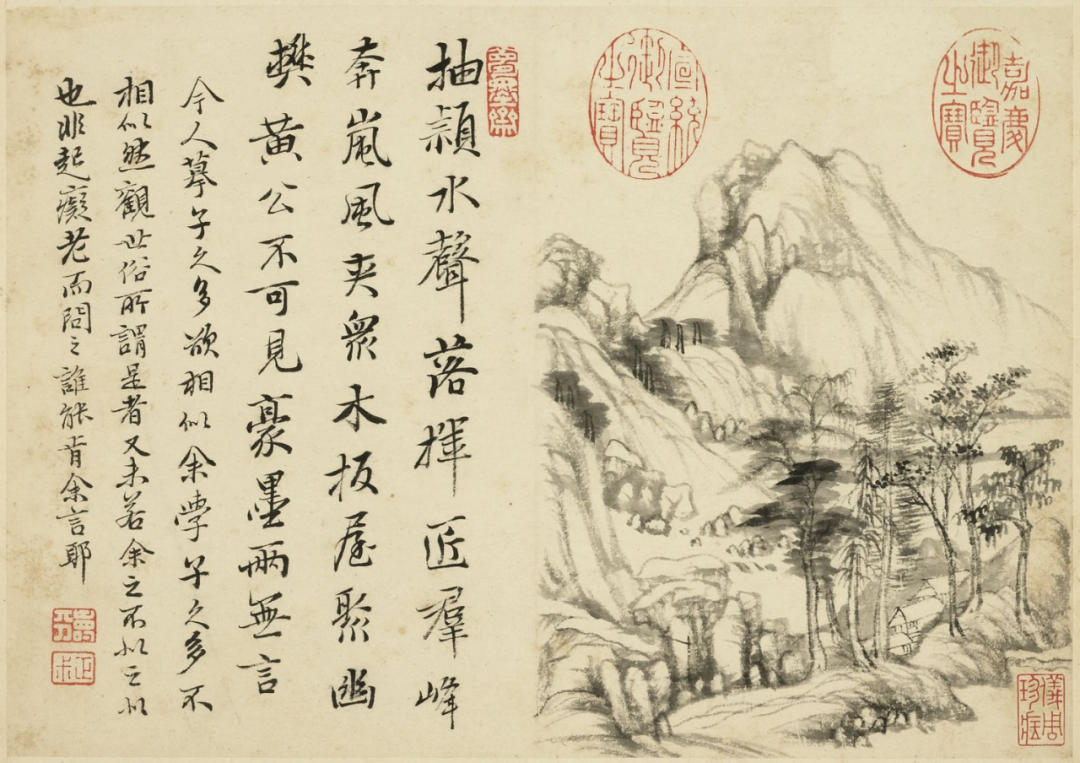 嘉慶御覽之寶
宣統御覽之寶
儀周珍藏
抽穎水聲落揮匠羣峰
奔嵐風夾衆木板屋聚幽
樊黃公不可見豪墨兩無言
今人摹子久多欲相似余學子久多不
相似然觀世俗所謂是者又未若余之不似之似
也非起癡老而問之誰能肯余言耶